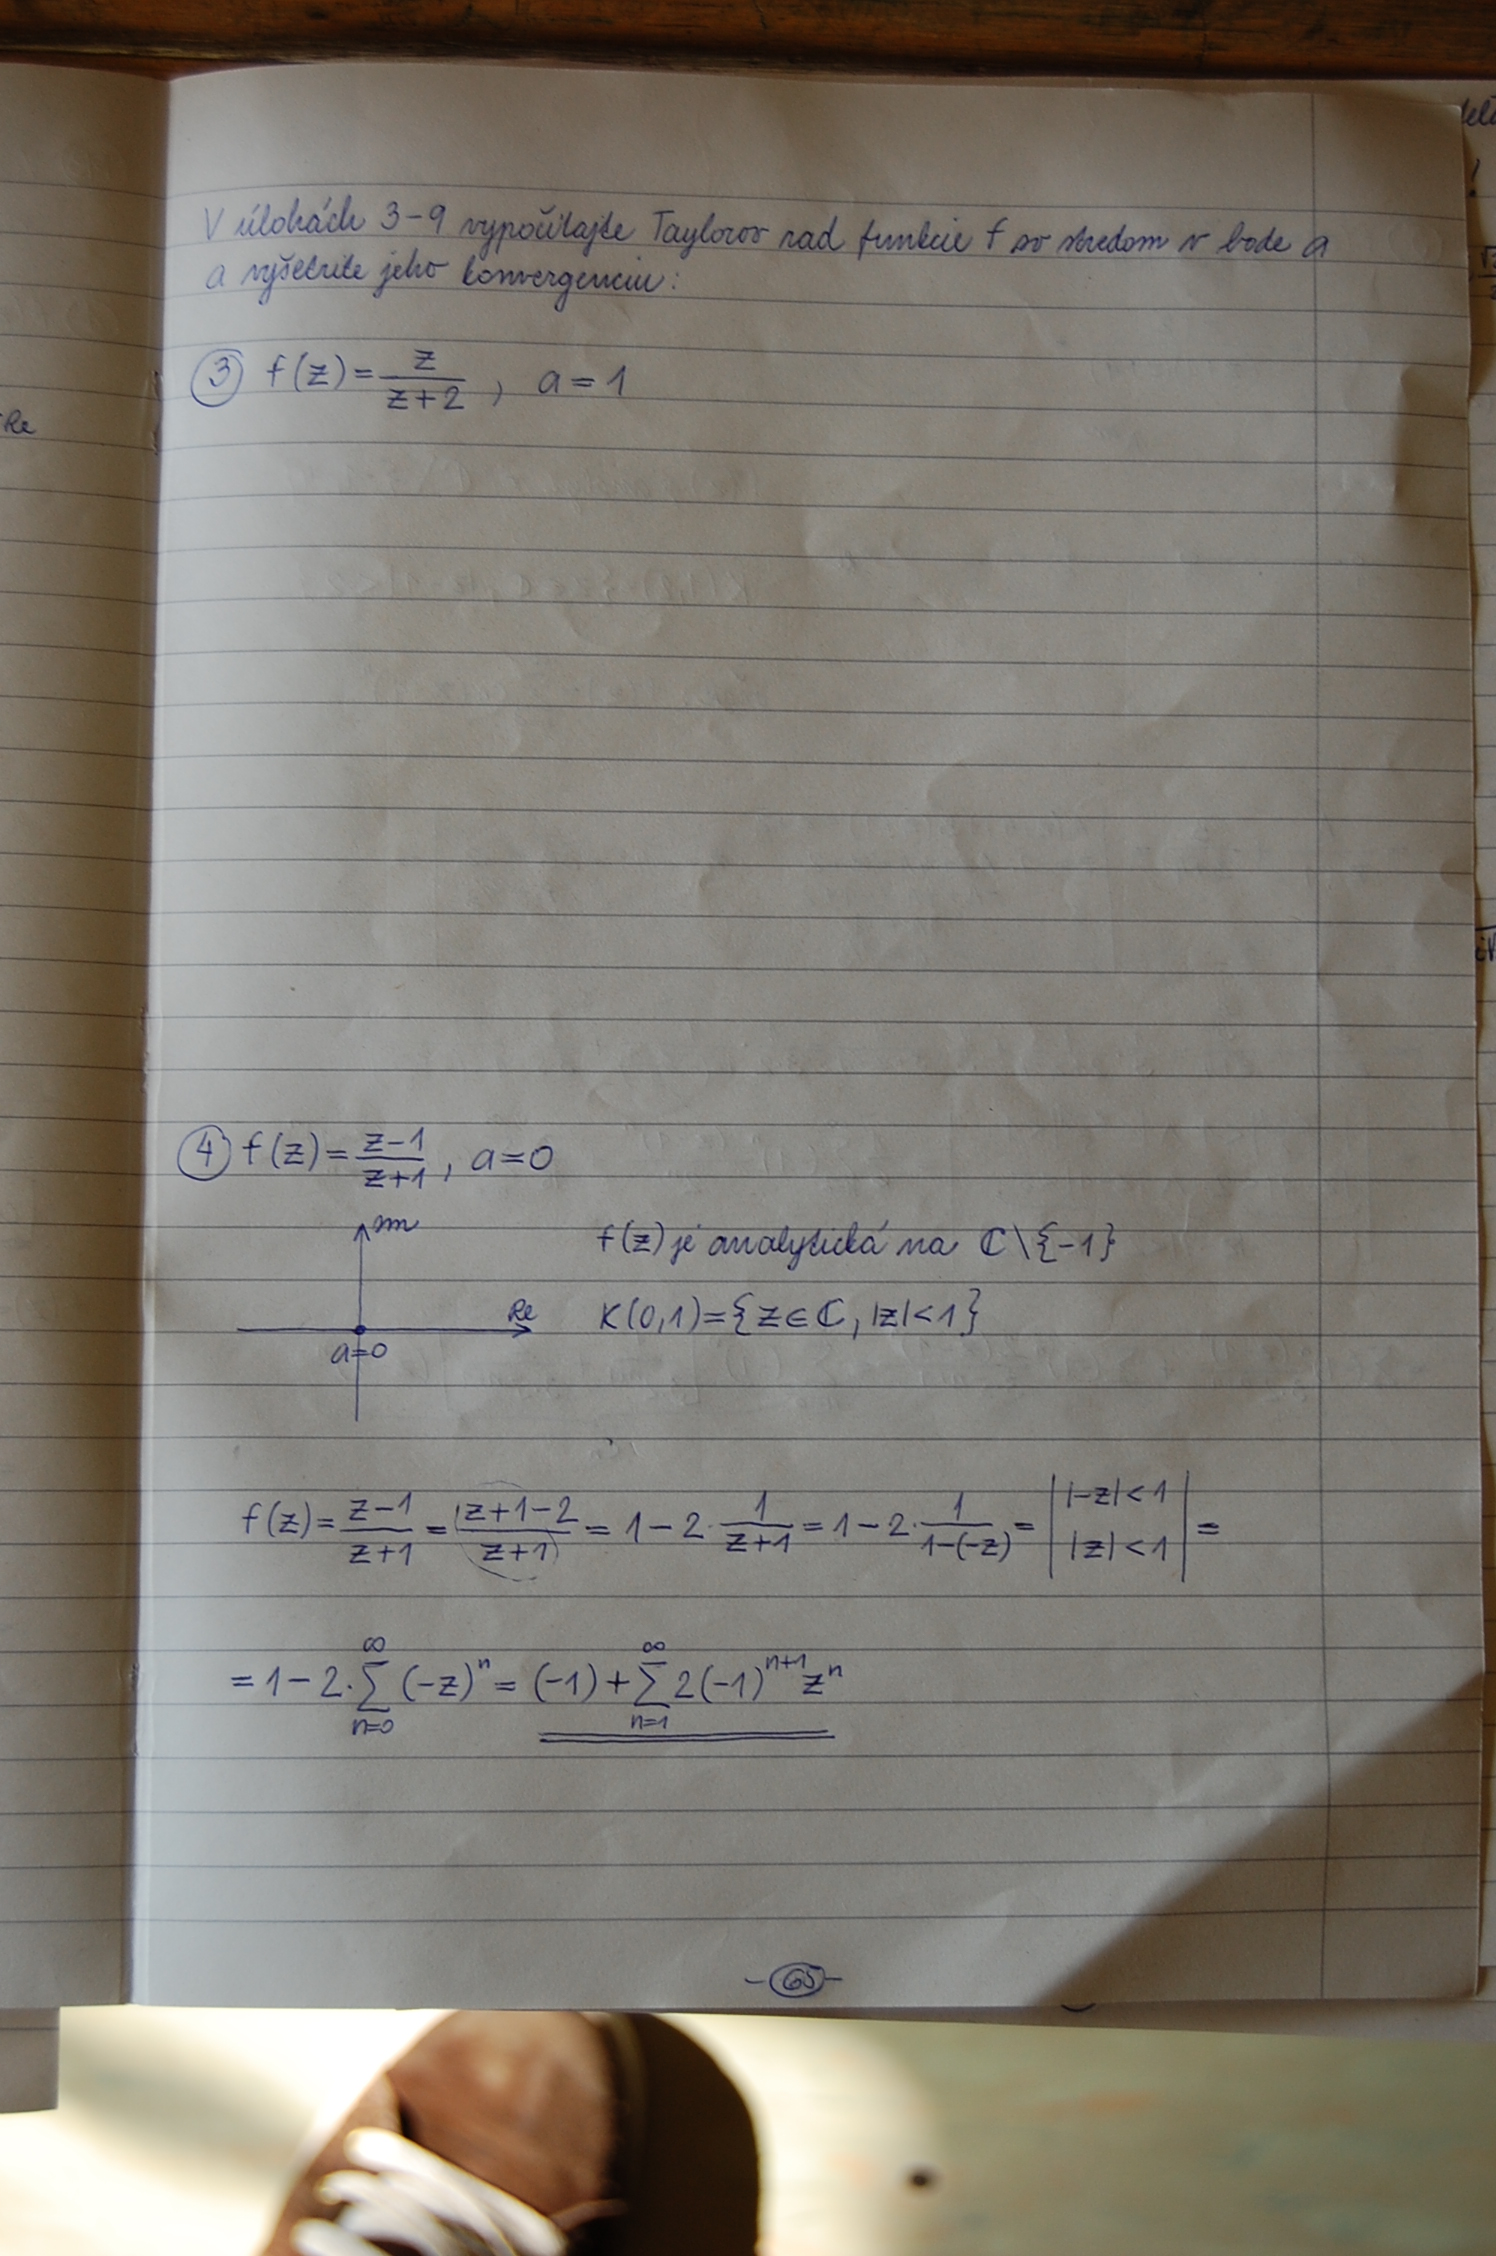 V úlohách 3-9 vypočítajte Taylorov rad funkcie f so stredom v bode a
a vyšetrite jeho konvergenciu:
③ f(z)=z/(z+2), a=1
Re
④ f(z)=(z-1)/(z+1), a=0
Im
f(z) je analytická na ℂ\{-1}
Re
K(0,1)={z∈ℂ, |z|<1}
a=0
f(z)=(z-1)/(z+1)=(z+1-2)/(z+1)=1-2·1/(z+1)=1-2·1/(1-(-z))=| |-z|<1 |z|<1 |=
=1-2·∑_{n=0}^{∞}(-z)^n=(-1)+∑_{n=1}^{∞}2(-1)^{n+1}z^n
-65-